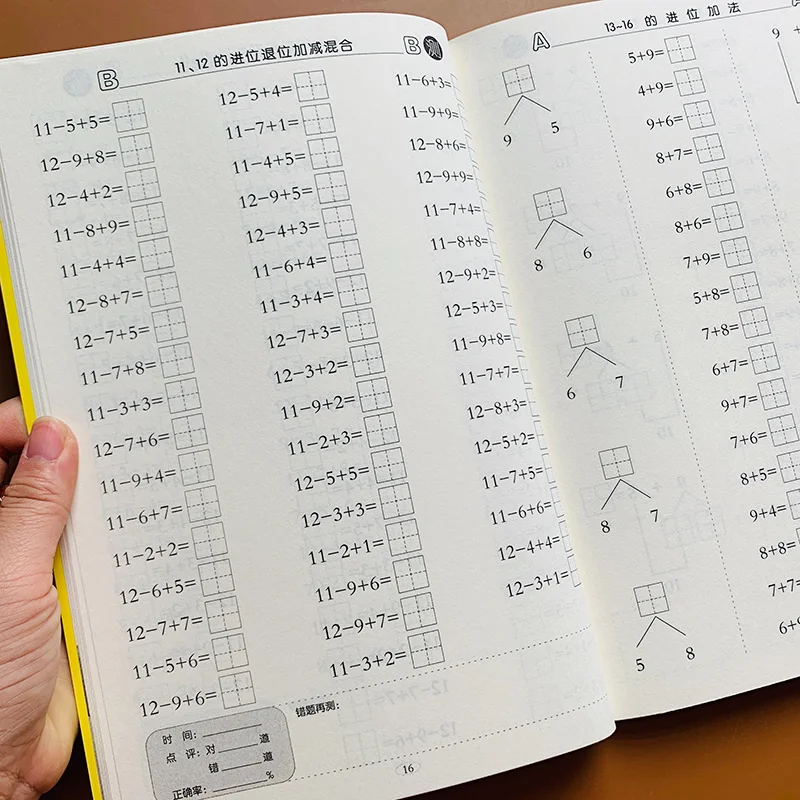 B 11、12 的进位退位加减混合 B 测
11−5+5=
12−9+8=
12−4+2=
11−8+9=
11−4+4=
12−8+7=
12−7+5=
11−7+8=
11−3+3=
12−7+6=
11−9+4=
11−6+7=
11−2+2=
12−6+5=
12−7+7=
11−5+6=
12−9+6=
12−5+4=
11−7+1=
11−4+5=
12−9+5=
12−4+3=
11−6+4=
11−3+4=
12−7+3=
12−3+2=
11−9+2=
11−2+3=
12−5+5=
12−3+3=
11−2+1=
11−9+6=
12−9+7=
11−3+2=
11−6+3=
11−9+9=
12−8+6=
12−9+9=
11−7+4=
11−8+8=
12−9+2=
12−5+3=
11−9+8=
11−7+7=
12−8+3=
12−5+2=
11−7+5=
11−6+6=
12−4+4=
12−3+1=
时 间：
点 评：对 道
错 道
正确率： %
错题再测：
16
A 13~16 的 进 位 加 法
9 5
8 6
6 7
8 7
5 8
5+9=
4+9=
9+6=
8+7=
6+8=
8+6=
7+9=
5+8=
7+8=
6+7=
9+7=
7+6=
8+5=
9+4=
8+8=
7+7=
6+9
9 +